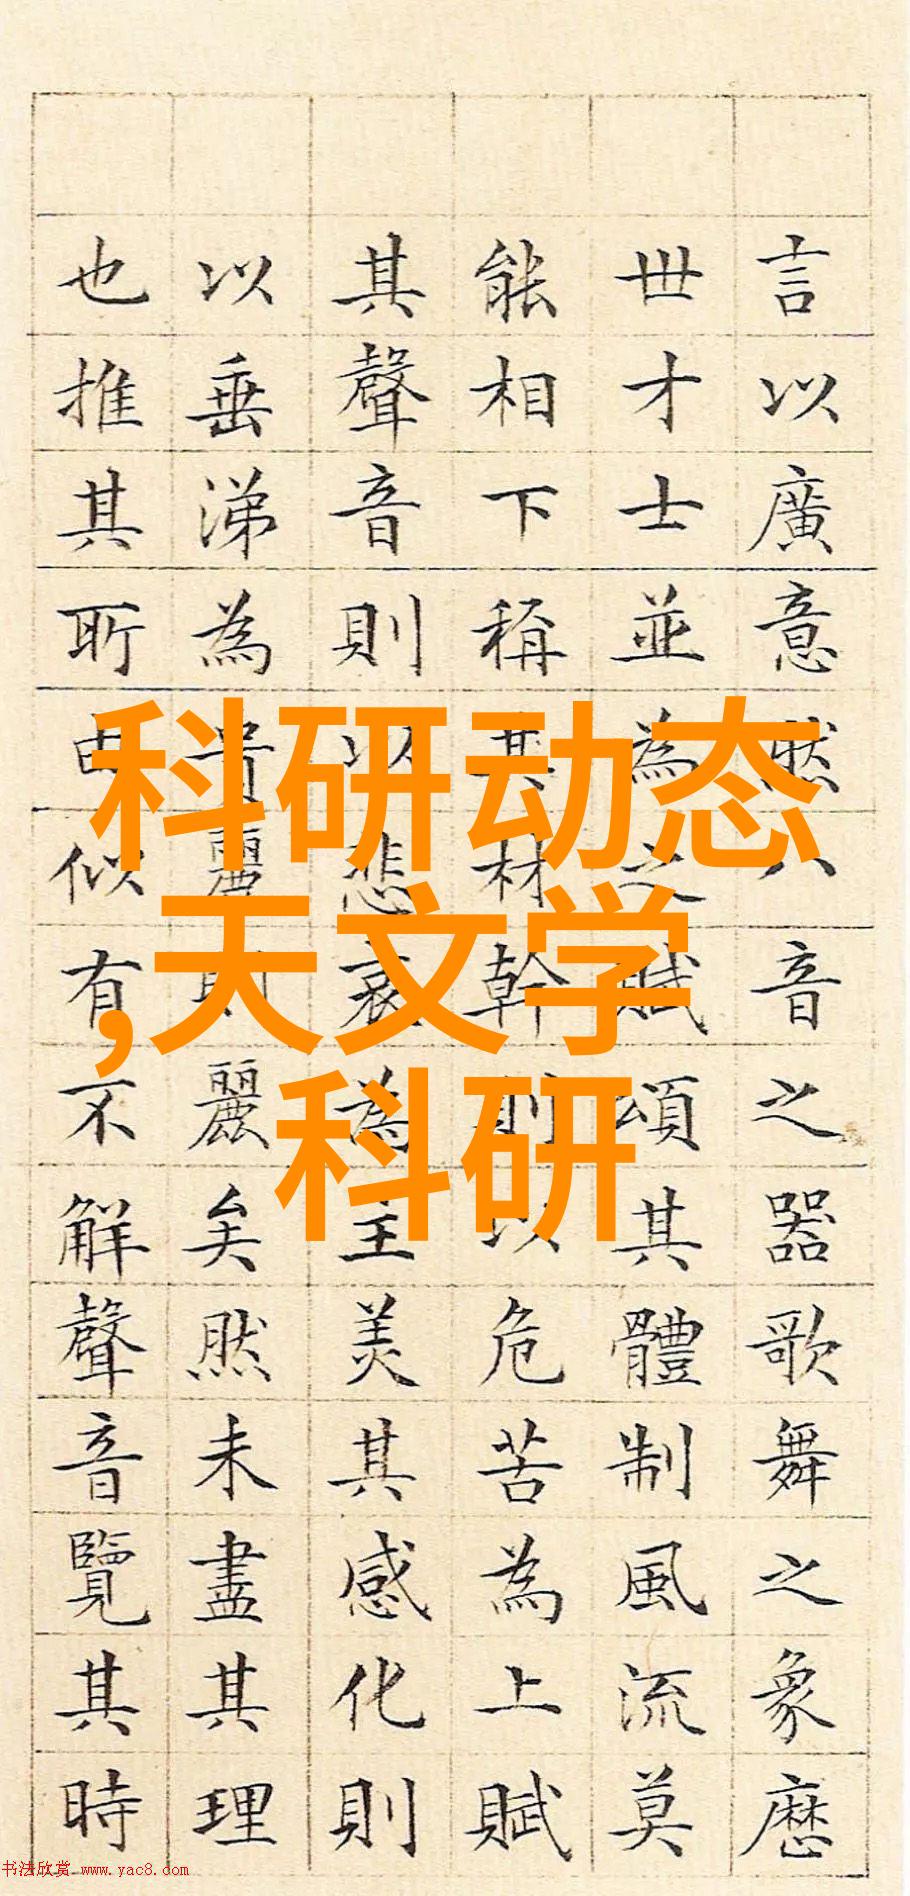 言以廣意然八音之器歌舞之象歷
世才士並為之賦頌其體制風流莫
能相下稱其材幹則以危苦為上賦
其聲音則以悲哀為主美其感化則
以垂涕為貴麗則麗矣然未盡其理
也推其所由似有不解聲音覽其時
科研动态
,天文学
科研
书法欣赏 www.yac8.com